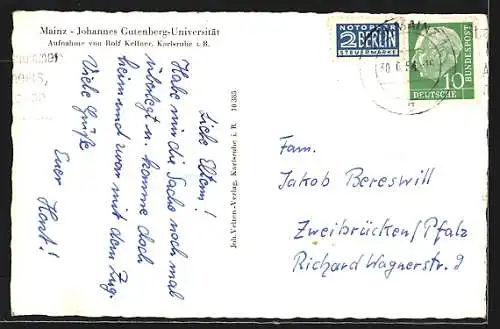 Mainz - Johannes Gutenberg-Universität
Aufnahme von Rolf Kellner, Karlsruhe i. B.
NOTOPFER
2 BERLIN
STEUERMARKE
30.6.54
10
DEUTSCHE
BUNDESPOST
Liebe Eltern!
Habe mir die Sache noch mal
überlegt u. komme doch
heim und zwar mit dem Zug.
Viele Grüße
Euer Horst!
Joh. Velten-Verlag, Karlsruhe i. B. 10 385
Fam.
Jakob Bereswill
Zweibrücken/Pfalz
Richard Wagnerstr. 9